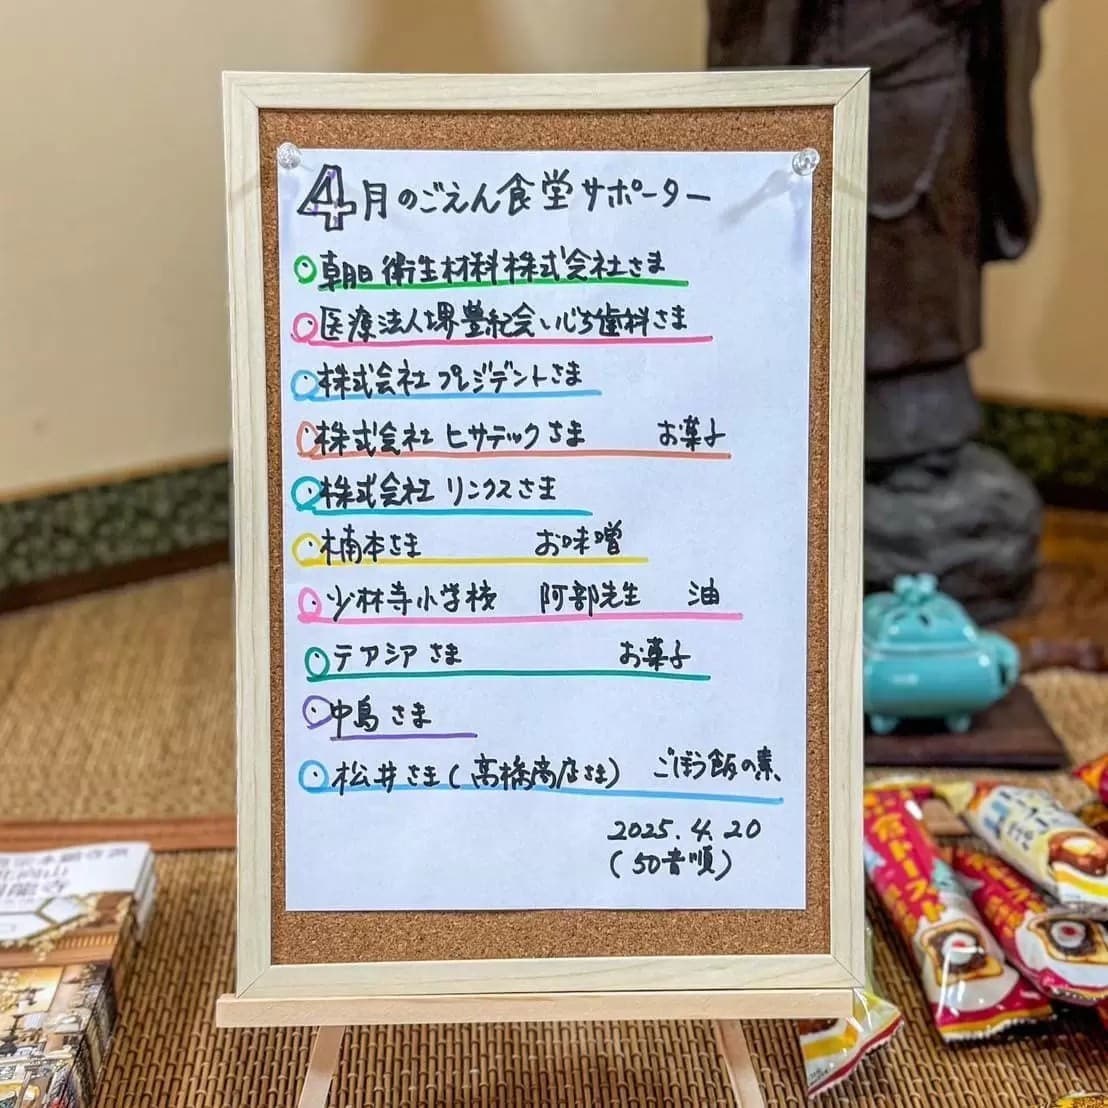 4月のごえん食堂サポーター
朝日衛生材料株式会社さま
医療法人堺豊紀会いじち歯科さま
株式会社プレジデントさま
株式会社ヒサテックさま お菓子
株式会社リンクスさま
楠本さま お味噌
少林寺小学校 阿部先生 油
テアシアさま お菓子
中島さま
松井さま(高橋商店さま) ごぼう飯の素
2025.4.20
(50音順)